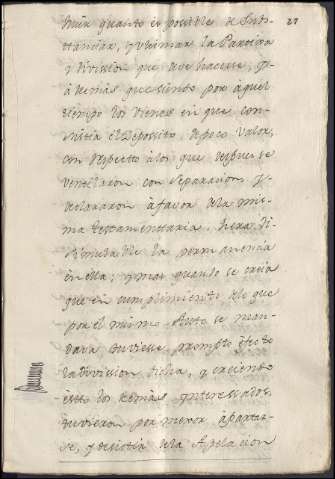 27
quanto es posible de Subs-
tanciar, y ultimar la Particion
y Division que deve hacerse, y
ademàs que siendo por aquel
tiempo los vienes en que con-
sistia el Deposito, de poco valor,
con respecto à los que despues se
ventilaron con separacion y
declararon à favor de la mis-
ma testamentaria, hera di-
simulable la permanencia
en ella; y mas quando se creia
que en cumplimiento de lo que
por el mismo Auto se man-
dava, tuviese prompto efecto
la Division dicha, y creiendo
esto los demàs Ynteresados,
tuvieron por menor apartar-
se, y desistir de la Apelacion